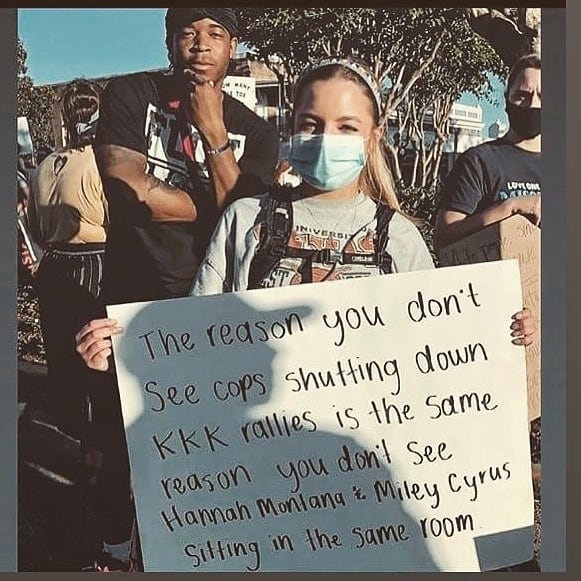 The reason you don't
See cops shutting down
KKK rallies is the same
reason you don't see
Hannah Montana & Miley Cyrus
Sitting in the same room.
UNIVERSITY
LOVE ONE